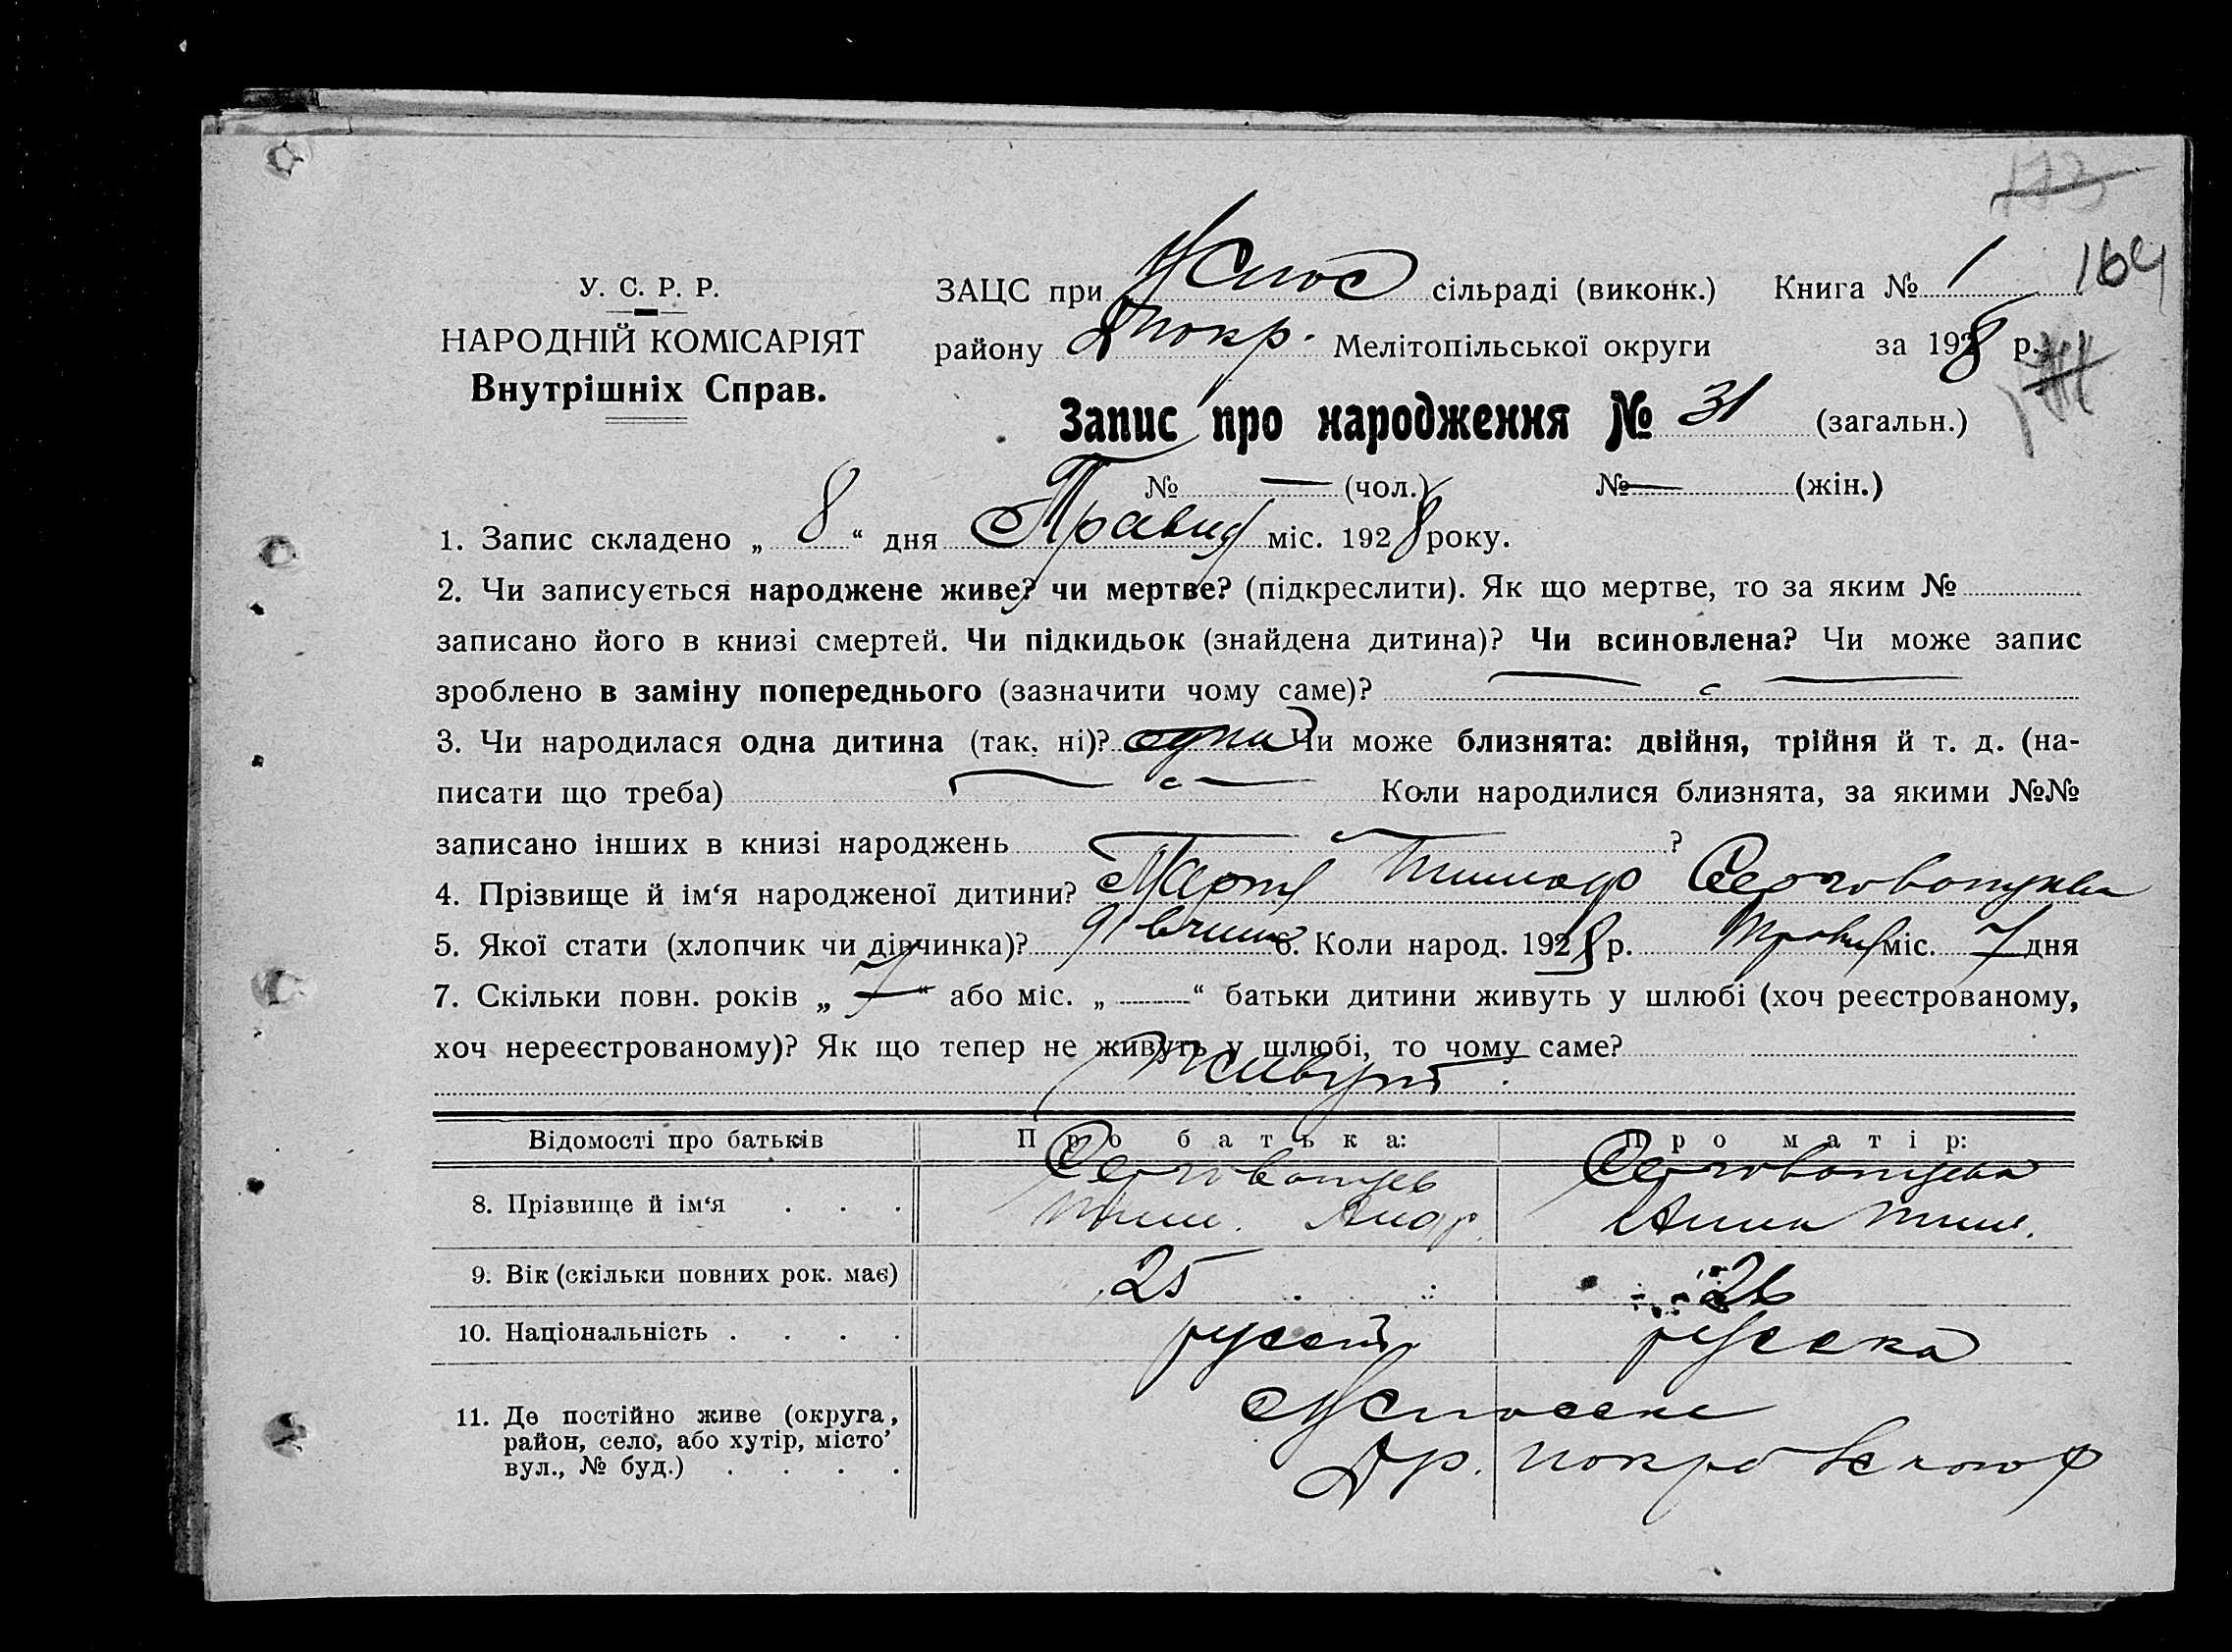 173
164
У. С. Р. Р.
НАРОДНІЙ КОМІСАРІЯТ
Внутрішніх Справ.
ЗАЦС при Успос сільраді (виконк.) Книга № 1
району Дпокр. Мелітопільської округи за 1928 р.
Запис про народження № 31 (загальн.)
№ — (чол.) № — (жін.)
1. Запис складено „ 8 “ дня Травня міс. 1928 року.
2. Чи записується народжене живе? чи мертве? (підкреслити). Як що мертве, то за яким №
записано його в книзі смертей. Чи підкидьок (знайдена дитина)? Чи всиновлена? Чи може запис
зроблено в заміну попереднього (зазначити чому саме)?
3. Чи народилася одна дитина (так, ні)? одна Чи може близнята: двійня, трійня й т. д. (на-
писати що треба) Коли народилися близнята, за якими №№
записано інших в книзі народжень ?
4. Прізвище й ім‘я народженої дитини?
5. Якої стати (хлопчик чи дівчинка)? дівчинка 6. Коли народ. 1928 р. Травня міс. 7 дня
7. Скільки повн. років „ 7 “ або міс. „ — “ батьки дитини живуть у шлюбі (хоч реєстрованому,
хоч нереєстрованому)? Як що тепер не живуть у шлюбі, то чому саме?
Живуть.
Відомості про батьків Про батька: Про матір:
8. Прізвище й ім‘я . . . Тим. Андр. Анна Тим.
9. Вік (скільки повних рок. має) 25 26
10. Національність . . . . руский руска
11. Де постійно живе (округа,
район, село, або хутір, місто’
вул., № буд.) . . . .